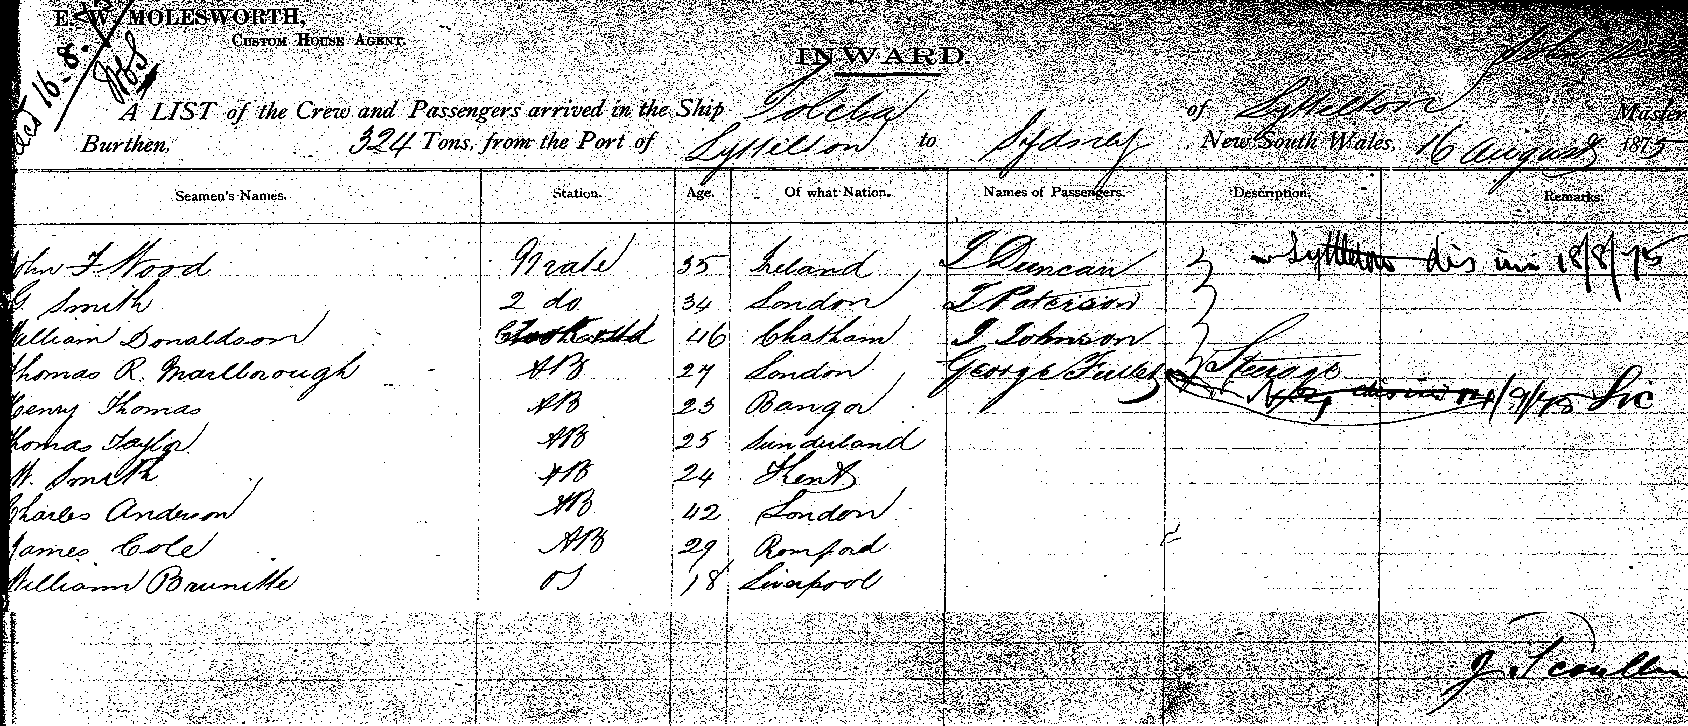 E. W. MOLESWORTH,
CUSTOM HOUSE AGENT.
16-8-
INWARD.
A LIST of the Crew and Passengers arrived in the Ship Tolcka of Lyttelton Master
Burthen, 324 Tons, from the Port of Lyttelton to Sydney New South Wales, 16 August 1875
Seamen's Names. Station. Age. Of what Nation. Names of Passengers. Description. Remarks.
John F Wood Mate 35 Ireland J Duncan Lyttleton dis in 18/8/75
G Smith 2 do 34 London J Paterson
William Donaldson 46 Chatham J Johnson
Thomas R. Marlborough AB 27 London George Fuller Steerage
Henry Thomas AB 23 Bangor 4/9/75
Thomas Taylor AB 25 Sunderland
W. Smith AB 24 Kent
Charles Anderson AB 42 London
James Cole AB 29 Romford
William Brunitte OS 18 Liverpool
J Scoullar